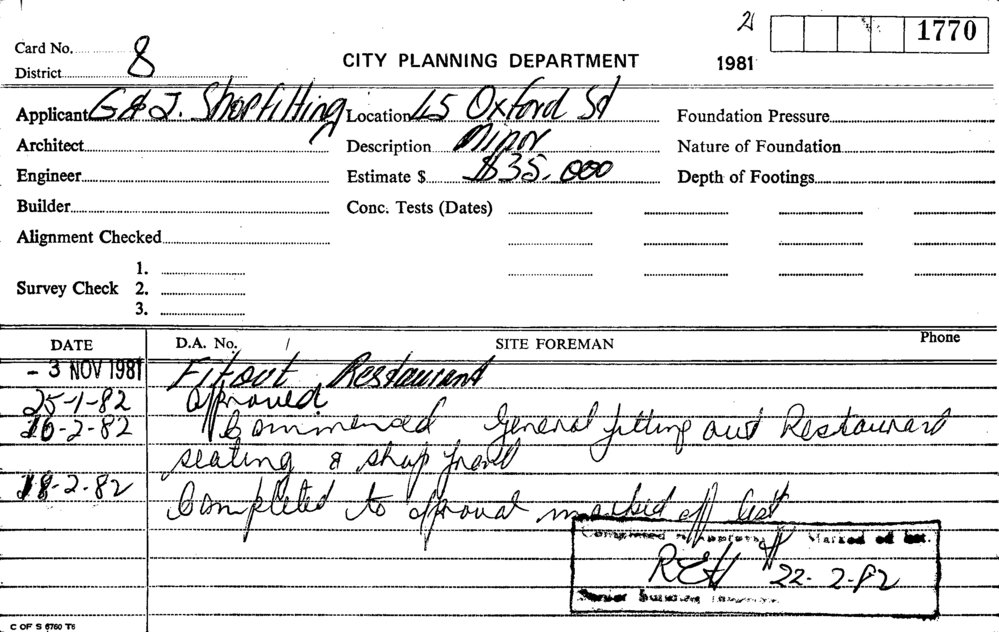 21 1770
Card No. 8
District
CITY PLANNING DEPARTMENT 1981
Applicant G & J. Shopfitting Location 45 Oxford St Foundation Pressure
Architect Description Minor Nature of Foundation
Engineer Estimate $ $35,000 Depth of Footings
Builder Conc. Tests (Dates)
Alignment Checked
1.
Survey Check 2.
3.
DATE D.A. No. / SITE FOREMAN Phone
- 3 NOV 1981 Fitout Restaurant
25-1-82 Approved.
16-2-82 Commenced General fitting out Restaurant
seating & shop front
18-2-82 Completed to aproval marked off list
Completed to Approval Marked off list.
REH 22-2-82
Senior Building Inspector
C OF S 6760 T6